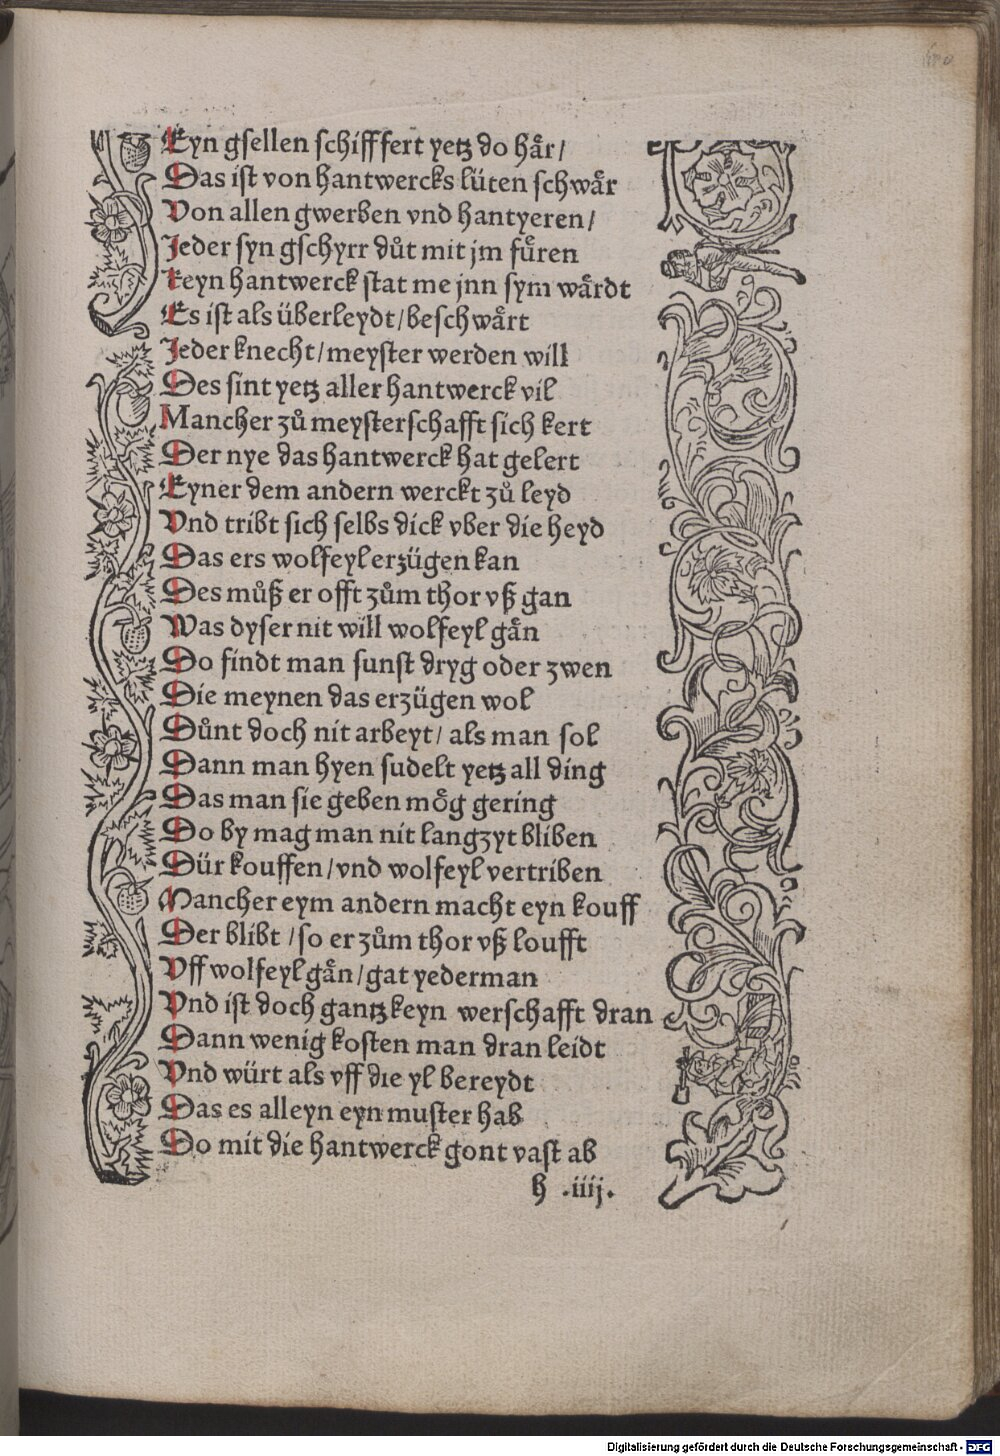 Eyn gsellen schiff fert yetz do haͤr/
Das ist von hantwercks lüten schwaͤr
Von allen gwerben vnd hantyeren/
Jeder syn gschyrr duͦt mit jm fuͤren
keyn hantwerck stat me jnn sym waͤrdt
Es ist als überleydt/beschwaͤrt
Jeder knecht/meyster werden will
Des sint yetz aller hantwerck vil
Mancher zuͦ meysterschafft sich kert
Der nye das hantwerck hat gelert
Eyner dem andern werckt zuͦ leyd
Vnd tribt sich selbs dick vber die heyd
Das ers wolfeyl erzügen kan
Des muͦß er offt zuͦm thor vß gan
Was dyser nit will wolfeyl gaͤn
Do findt man sunst dryg oder zwen
Die meynen das erzügen wol
Duͦnt doch nit arbeyt/ als man sol
Dann man hyen sudelt yetz all ding
Das man sie geben moͤg gering
Do by mag man nit langzyt bliben
Dür kouffen/vnd wolfeyl vertriben
Mancher eym andern macht eyn kouff
Der blibt /so er zuͦm thor vß loufft
Vff wolfeyl gaͤn/gat yederman
Vnd ist doch gantz keyn werschafft dran
Dann wenig kosten man dran leidt
Vnd würt als vff die yl bereydt
Das es alleyn eyn muster hab
Do mit die hantwerck gont vast ab
h .iiij.
Digitalisierung gefördert durch die Deutsche Forschungsgemeinschaft - DFG